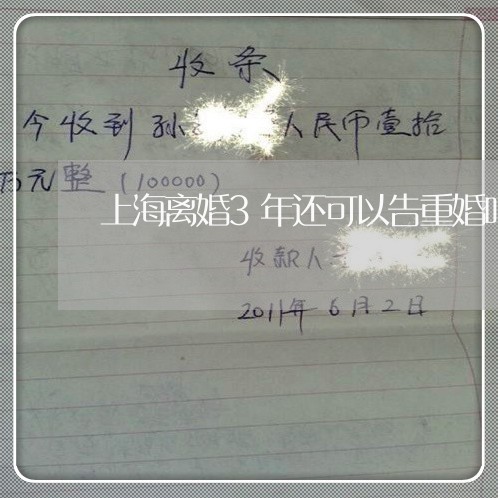 收条
今收到孙 人民币壹拾
万元整(100000)
上海离婚3年还可以告重婚
收款人
2011年6月2日